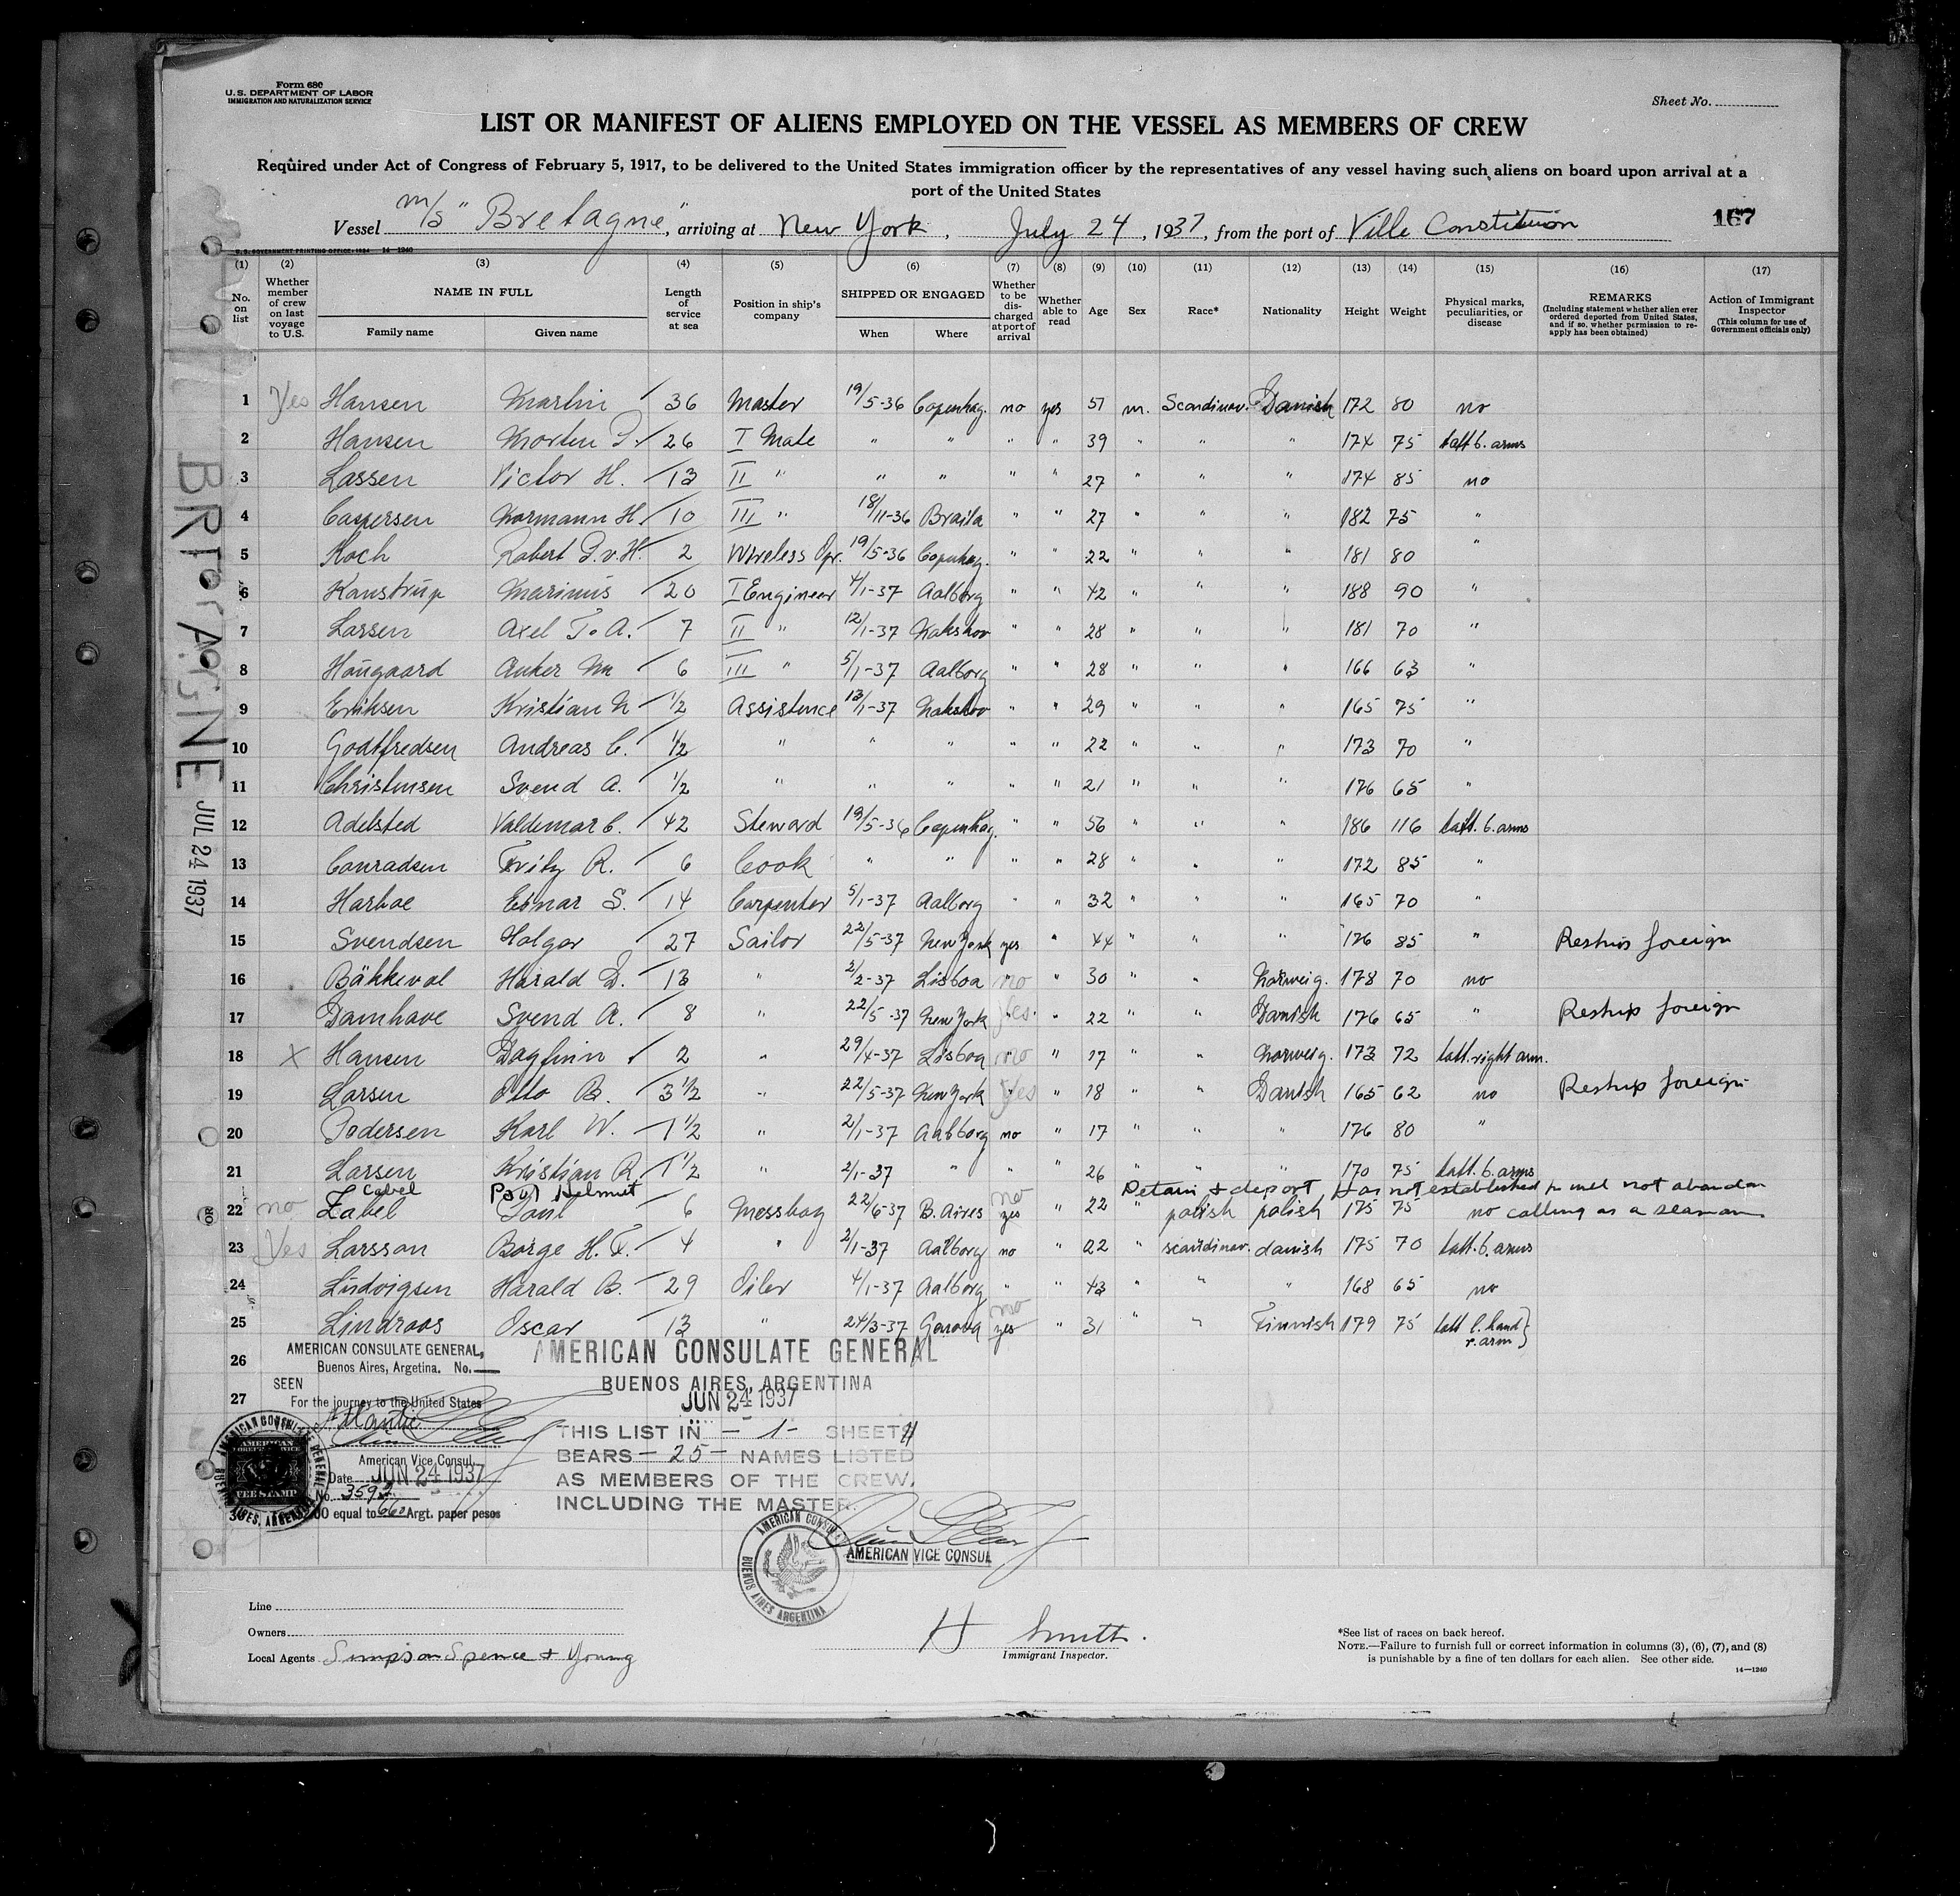 Form 680
U. S. DEPARTMENT OF LABOR
IMMIGRATION AND NATURALIZATION SERVICE
Sheet No.
LIST OR MANIFEST OF ALIENS EMPLOYED ON THE VESSEL AS MEMBERS OF CREW
Required under Act of Congress of February 5, 1917, to be delivered to the United States immigration officer by the representatives of any vessel having such aliens on board upon arrival at a
port of the United States
Vessel M/S "Bretagne", arriving at New York, July 24, 1937, from the port of Ville Constitucion
167
U. S. GOVERNMENT PRINTING OFFICE: 1934 14—1240
(1) (2) (3) (4) (5) (6) (7) (8) (9) (10) (11) (12) (13) (14) (15) (16) (17)
No. on list
Whether member of crew on last voyage to U.S.
NAME IN FULL
Family name
Given name
Length of service at sea
Position in ship's company
SHIPPED OR ENGAGED
When
Where
Whether to be discharged at port of arrival
Whether able to read
Age
Sex
Race*
Nationality
Height
Weight
Physical marks, peculiarities, or disease
REMARKS
(Including statement whether alien ever ordered deported from United States, and if so, whether permission to reapply has been obtained)
Action of Immigrant Inspector
(This column for use of Government officials only)
1 Yes Hansen Martin 36 Master 19/5-36 Copenhag. no yes 57 m. Scandinav. Danish 172 80 no
2 Hansen Morten P. 26 I Mate " " " " 39 " " " 174 75 tatt b. arms
3 Lassen Victor H. 13 II " " " " " 27 " " " 174 85 no
4 Caspersen Normann H. 10 III " 18/11-36 Braila " " 27 " " " 182 75 "
5 Koch Robert P.v.H. 2 Wireless Opr. 19/5-36 Copenhag. " " 22 " " " 181 80 "
6 Kanstrup Marinus 20 I Engineer 4/1-37 Aalborg " " 42 " " " 188 90 "
7 Larsen Axel T. A. 7 II " 12/1-37 Nakskov " " 28 " " " 181 70 "
8 Haugaard Anker M 6 III " 5/1-37 Aalborg " " 28 " " " 166 63 "
9 Eriksen Kristian N 1/2 Assistence 13/1-37 Nakskov " " 29 " " " 165 75 "
10 Godtfredsen Andreas C. 1/2 " " " " " 22 " " " 173 70 "
11 Christensen Svend A. 1/2 " " " " " 21 " " " 176 65 "
12 Adelsted Valdemar C. 42 Steward 19/5-36 Copenhag. " " 56 " " " 186 116 tatt. b. arms
13 Conradsen Fritz R. 6 Cook " " " " 28 " " " 172 85 "
14 Harboe Ejnar S. 14 Carpenter 5/1-37 Aalborg " " 32 " " " 165 70 "
15 Svendsen Holger 27 Sailor 22/5-37 New York yes " 44 " " " 176 85 " Reship foreign
16 Bäkkeval Harald D. 13 " 2/2-37 Lisboa no " 30 " " Norweig. 178 70 no
17 Damhave Svend A. 8 " 22/5-37 New York yes " 22 " " Danish 176 65 " Reship foreign
18 X Hansen Dagfinn 2 " 29/4-37 Lisboa no " 17 " " Norweig. 173 72 tatt. right arm.
19 Larsen Otto B. 3 1/2 " 22/5-37 New York Yes " 18 " " Danish 165 62 no Reship foreign
20 Pedersen Karl W. 1 1/2 " 2/1-37 Aalborg no " 17 " " " 176 80 "
21 Larsen Kristian R. 1 1/2 " 2/1-37 " " " 26 " " " 170 75 tatt. b. arms
Cabel Paul Helmut no Detain & deport Has not established he will not abandon
22 no Zabel Paul 6 Messboy 22/6-37 B. Aires yes " 22 " polish polish 175 75 no calling as a seaman
23 Yes Larsson Börge H. F. 4 " 2/1-37 Aalborg no " 22 " scandinav. danish 175 70 tatt. b. arms
24 Ludvigsen Harald B. 29 Oiler 4/1-37 Aalborg " " 43 " " " 168 65 no
25 Lindroos Oscar 13 " 24/3-37 Genova no yes " 31 " " Finnish 179 75 tatt l. hand
r. arm
26
27
AMERICAN CONSULATE GENERAL,
Buenos Aires, Argetina. No.
SEEN
For the journey to the United States
Atlantic
American Vice Consul.
Date JUN 24 1937
No. 3593
equal to 6.60 Argt. paper pesos
AMERICAN CONSULATE GENERAL
BUENOS AIRES, ARGENTINA
AMERICAN FOREIGN SERVICE
FEE STAMP
AMERICAN CONSULATE GENERAL
BUENOS AIRES, ARGENTINA
JUN 24 1937
THIS LIST IN - 1 - SHEETS
BEARS - 25 - NAMES LISTED
AS MEMBERS OF THE CREW,
INCLUDING THE MASTER.
AMERICAN VICE CONSUL
AMERICAN CONSULATE
BUENOS AIRES ARGENTINA
JUL 24 1937
Line
Owners
Local Agents Simpson Spence & Young
H Smith.
Immigrant Inspector.
*See list of races on back hereof.
NOTE.—Failure to furnish full or correct information in columns (3), (6), (7), and (8)
is punishable by a fine of ten dollars for each alien. See other side.
14—1240